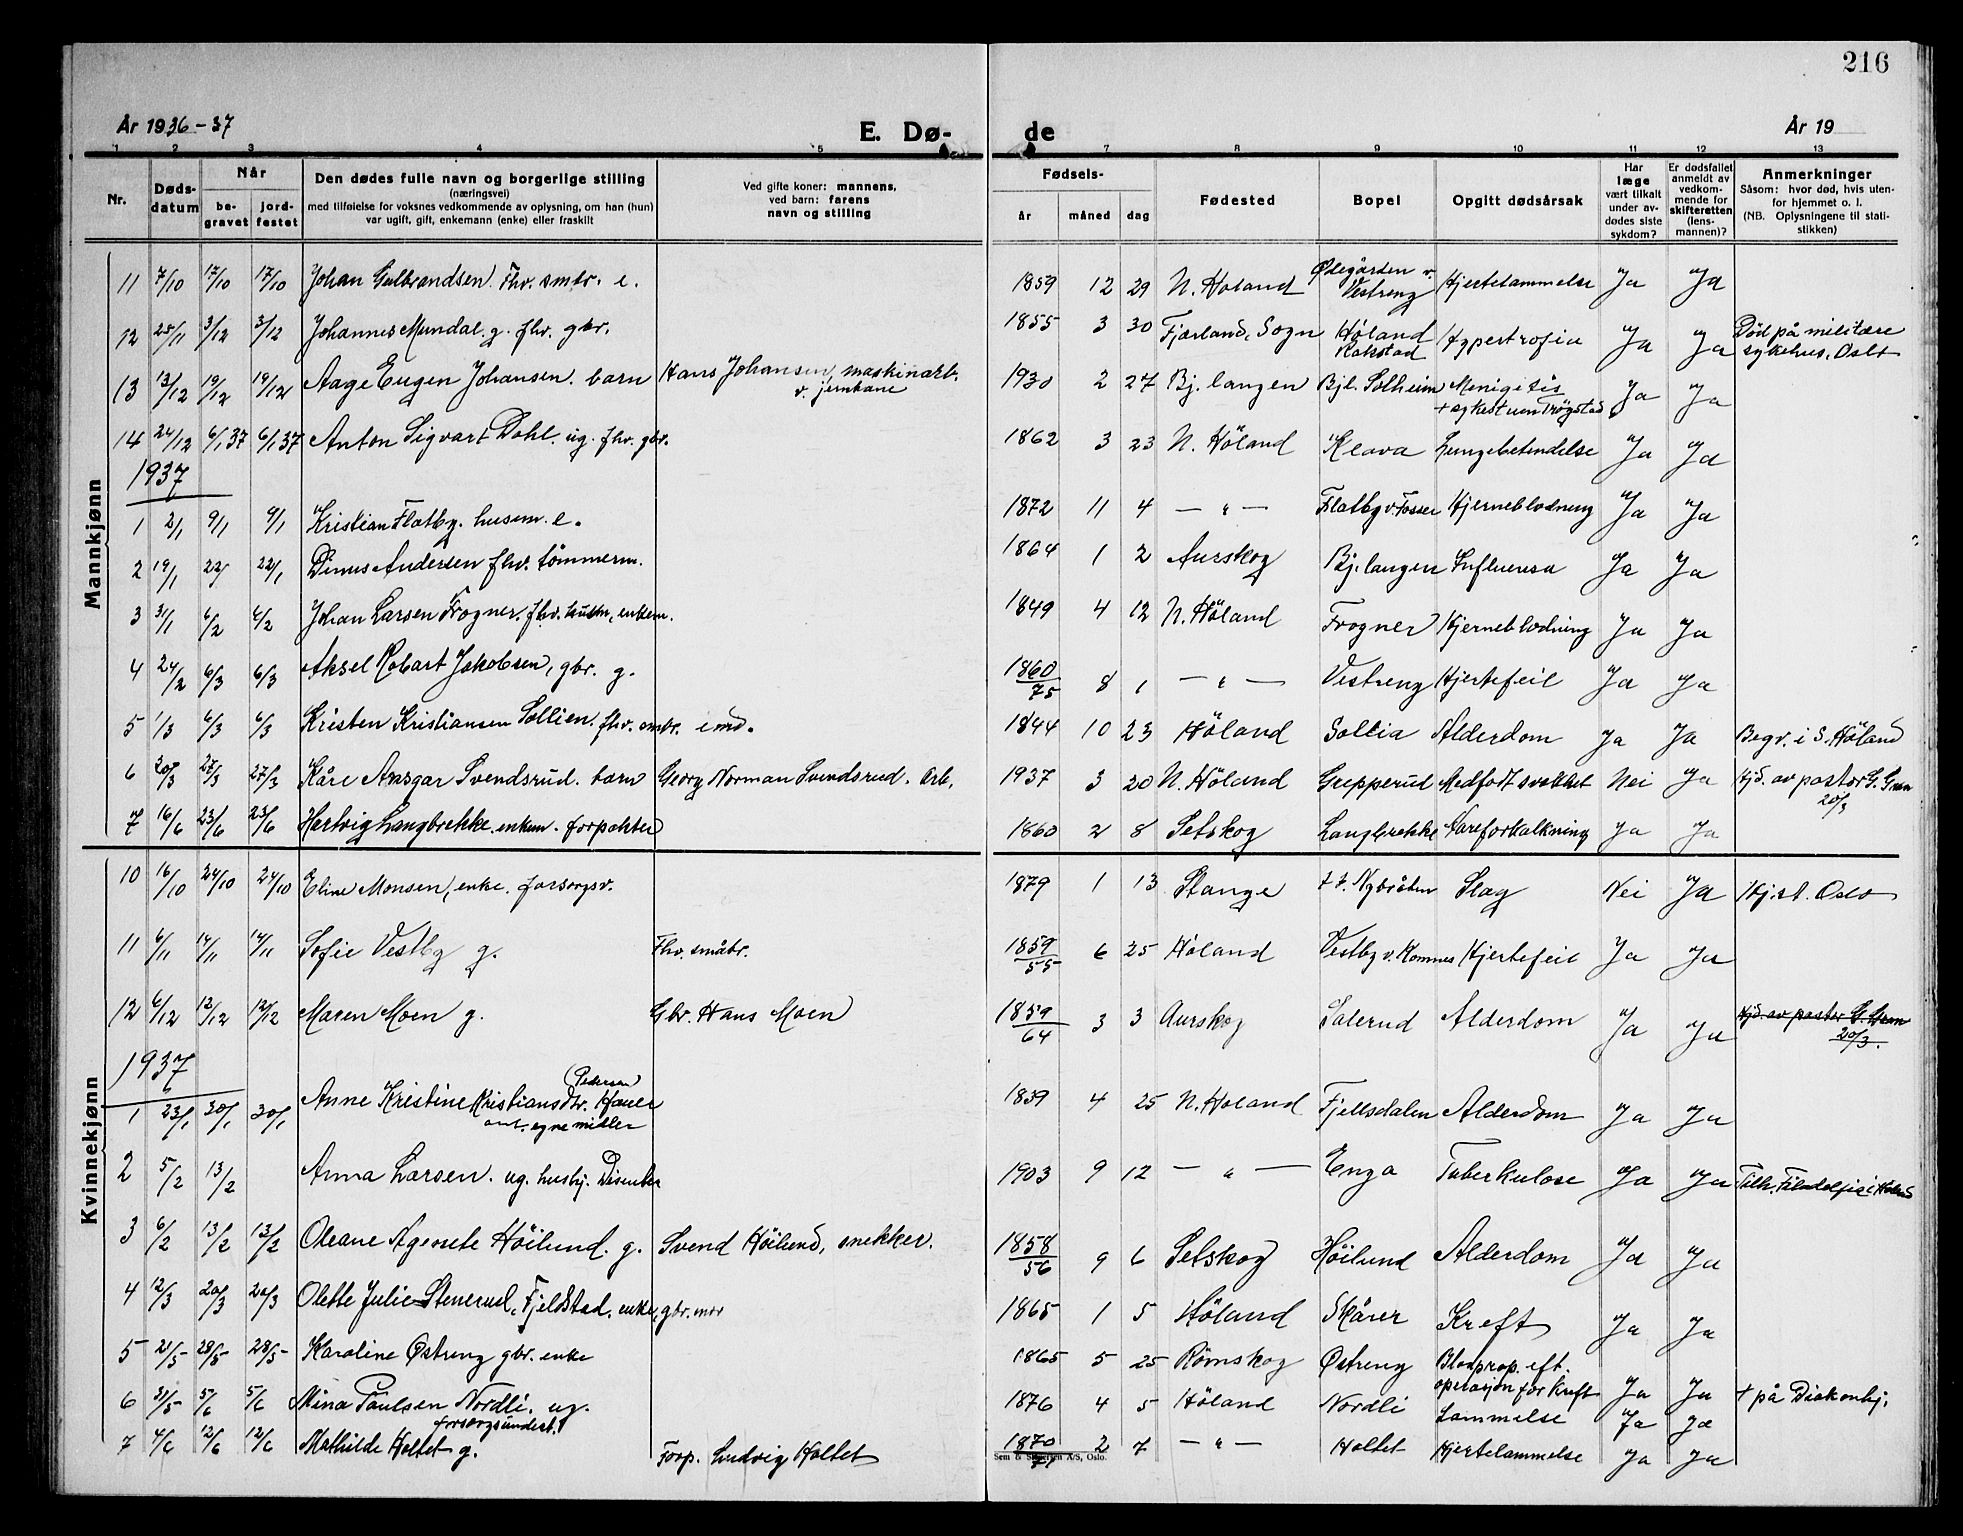 216
År 1936-37 E. Dø- de År 19
1 2 3 4 5 7 8 9 10 11 12 13
Nr. Døds-datum Når be-gravet jord-festet Den dødes fulle navn og borgerlige stilling (næringsvei) med tilføielse for voksnes vedkommende av oplysning, om han (hun) var ugift, gift, enkemann (enke) eller fraskilt Ved gifte koner: mannens, ved barn: farens navn og stilling Fødsels- år måned dag Fødested Bopel Opgitt dødsårsak Har læge vært tilkalt under av-dødes siste sykdom? Er dødsfallet anmeldt av vedkom-mende for skifteretten (lens-mannen)? Anmerkninger Såsom: hvor død, hvis uten-for hjemmet o. l. (NB. Oplysningene til stati-stikken)
Mannkjønn
11 7/10 17/10 17/10 Johan Gulbrandsen. Fhv. smbr. e. 1859 12 29 N. Høland Ødegården v. Vestreng Hjertelammelse Ja Ja
12 25/11 3/12 3/12 Johannes Mundal. g. fhv. gbr. 1855 3 30 Fjærland, Sogn Høland Rakstad Hypertrofia Ja Ja Død på militære sykehus, Oslo
13 13/12 19/12 19/12 Aage Eugen Johansen. barn Hans Johansen, maskinarb. v. jernbane 1930 2 27 Bj. langen Bjl. Solheim Menigitis + sykestuen Trøgstad Ja Ja
14 24/12 6/1 37 6/1 37 Anton Sigvart Dahl. ug. fhv. gbr. 1862 3 23 N. Höland Kleva Lungebetendelse Ja Ja
1937
1 2/1 9/1 9/1 Kristian Flatby. husm. e. 1872 11 4 — " — Flatby v. Fosser Hjerneblødning Ja Ja
2 19/1 22/ 22/1 Dinus Andersen fhv. tömmerm. 1864 1 2 Aurskog Bj. langen Influensa Ja Ja
3 31/1 6/2 6/2 Johan Larsen Frogner. fhv. husm, enkem. 1849 4 12 N. Höland Frogner Hjerneblødning Ja Ja
4 24/2 6/3 6/3 Aksel Robart Jakobsen, gbr. g. 1860/75 8 1 — " — Vestreng Hjertefeil Ja Ja
5 1/3 6/3 6/3 Kristen Kristiansen Sollien. fhv. smbr. e md. 1844 10 23 Höland Sollia Alderdom Ja Ja Begr. i S. Höland
6 20/3 27/3 27/3 Kåre Ansgar Svendsrud. barn Georg Norman Svendsrud. Arb. 1937 3 20 N. Höland Grepperud Medfødt svakhet Nei Ja Hjd. av pastor G. Gran 20/3
7 16/6 23/6 23/6 Hertvig Langbrekke. enkem. forpakter 1860 2 8 Setskog Langbrekke Åreforkalkning Ja Ja
Kvinnekjønn
10 16/10 24/10 24/10 Eline Monsen, enke. forsorgsv. 1879 1 13 Stange Nybråten Slag Nei Ja Hj. st. Oslo
11 6/11 14/11 14/11 Sofie Vestby g. Fhv. småbr. 1859/55 6 25 Høland Vestby v. Komnes Hjertefeil Ja Ja
12 6/12 12/12 12/12 Maren Moen g. Gbr. Hans Moen 1859/64 3 3 Aurskog Salerud Alderdom Ja Ja Hjd. av pastor G. Gran 20/3.
1937
1 23/1 30/1 30/1 Anne Kristine Kristiansdtr. (Pedersen) Hauer ant. egne midler 1839 4 25 N. Høland Fjellsdalen Alderdom Ja Ja
2 5/2 13/2 Anna Larsen. ug. hushj. Dissenter 1903 9 12 — " — Enga Tuberkulose Ja Ja Tilh. Filadelfia i Høland
3 6/2 13/2 13/2 Oleane Agenete Höilund. g. Svend Höilund, snekker. 1858/56 9 6 Setskog Höilund Alderdom Ja Ja
4 12/3 20/3 20/3 Olette Julie Stenerud, Fjeldstad. enke, gbr. mor 1865 1 5 Höland Skårer Kreft Ja Ja
5 21/5 28/5 28/5 Karoline Østreng gbr. enke 1865 5 25 Römskog Østreng Blodprop. eft. operasjon for kreft Ja Ja + på Diakonhj.
6 31/5 5/6 5/6 Mina Paulsen Nordli. ug. forsorgsunderst. 1876 4 5 Höland Nordli Lammelse Ja Ja
7 4/6 12/6 12/6 Mathilde Holtet g. Forp. Ludvig Holtet 1870/71 2 7 — " — Holtet Hjertelammelse Ja Ja